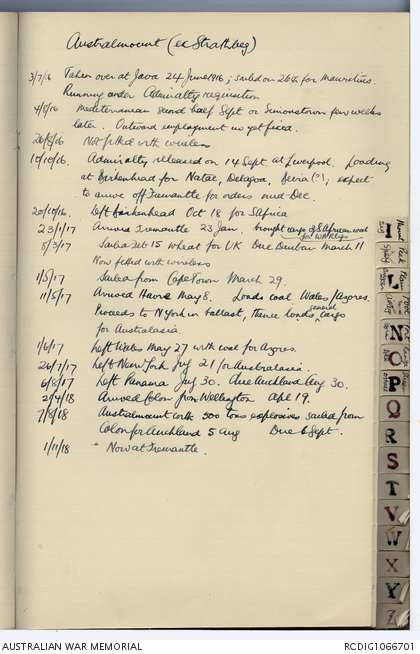 Australmount (ex Strathbeg)
3/7/16 Taken over at Java 24 June 1916; sailed on 26th for Mauritius.
Running under Admiralty requisition
4/8/16 Mediterranean second half Sept or Simonstown few weeks
later. Outward employment not yet fixed.
26/8/16 Not fitted with wireless
10/10/16. Admiralty released on 14 Sept at Liverpool. Loading
at Birkenhead for Natal, Delagoa, Beira (?); expect
to arrive off Fremantle for orders mid-Dec.
20/10/16. Left Birkenhead Oct 18 for S Africa
23/1/17 Arrived Fremantle 23 Jan. brought cargo of S African coal
for
5/3/17 Sailed Feb 15 wheat for UK Due Durban March 11
Now fitted with wireless
1/5/17 Sailed from Cape Town March 29.
11/5/17 Arrived Havre May 8. Loads coal Wales/Azores.
Proceeds to N York in ballast, thence loads general cargo
for Australasia.
1/6/17 Left Wales May 27 with coal for Azores.
26/7/17 Left New York July 21 for Australasia.
6/8/17 Left Panama July 30. Due Auckland Aug 30.
2/4/18 Arrived Colon from Wellington Apl 19.
7/8/18 Australmount with 300 tons explosives sailed from
Colon for Auckland 5 Aug Due 6 Sept.
1/11/18 " Now at Fremantle.
L
N
O
P
R
S
T
V
W
X
Y
Z
AUSTRALIAN WAR MEMORIAL RCDIG1066701